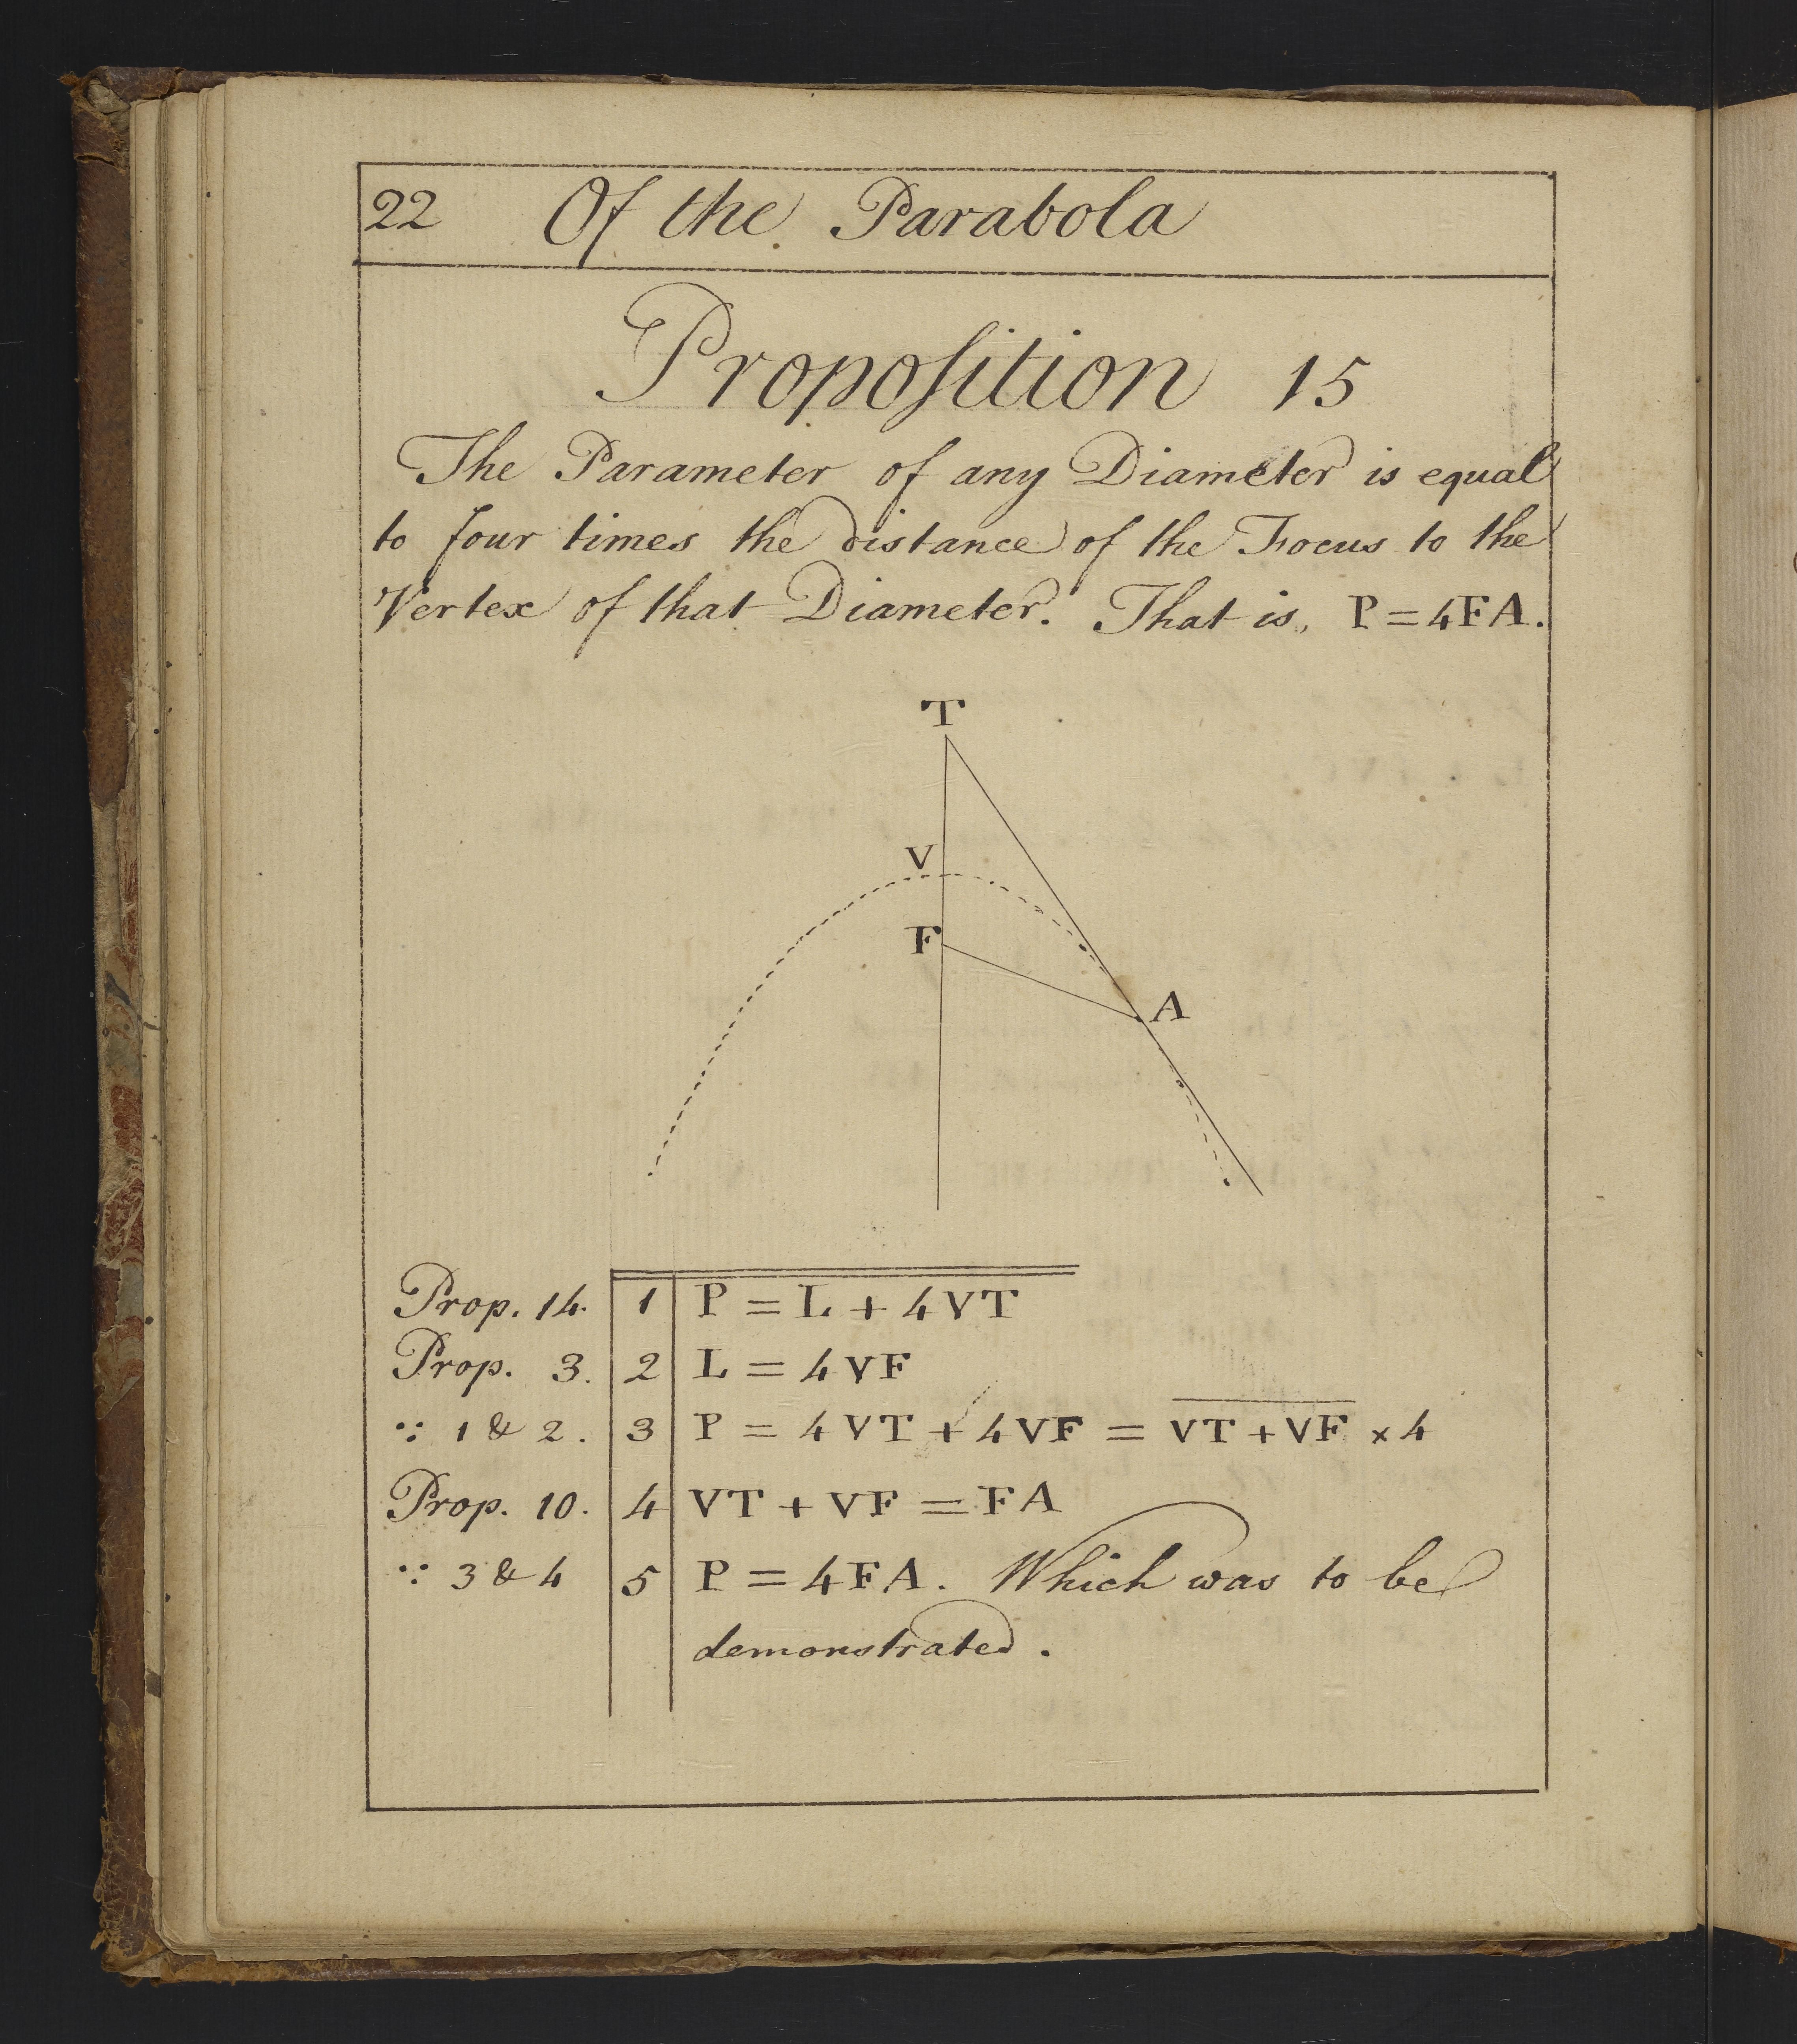 22 Of the Parabola
Propoſition 15
The Parameter of any Diameter is equal
to four times the distance of the Focus to the
Vertex of that Diameter. That is, P = 4FA.
T
V
F
A
Prop. 14. 1 P = L + 4VT
Prop. 3. 2 L = 4VF
∵ 1 & 2. 3 P = 4VT + 4VF = V̅T̅ ̅+̅ ̅V̅F̅ × 4
Prop. 10. 4 VT + VF = FA
∵ 3 & 4 5 P = 4FA. Which was to be
demonstrated.